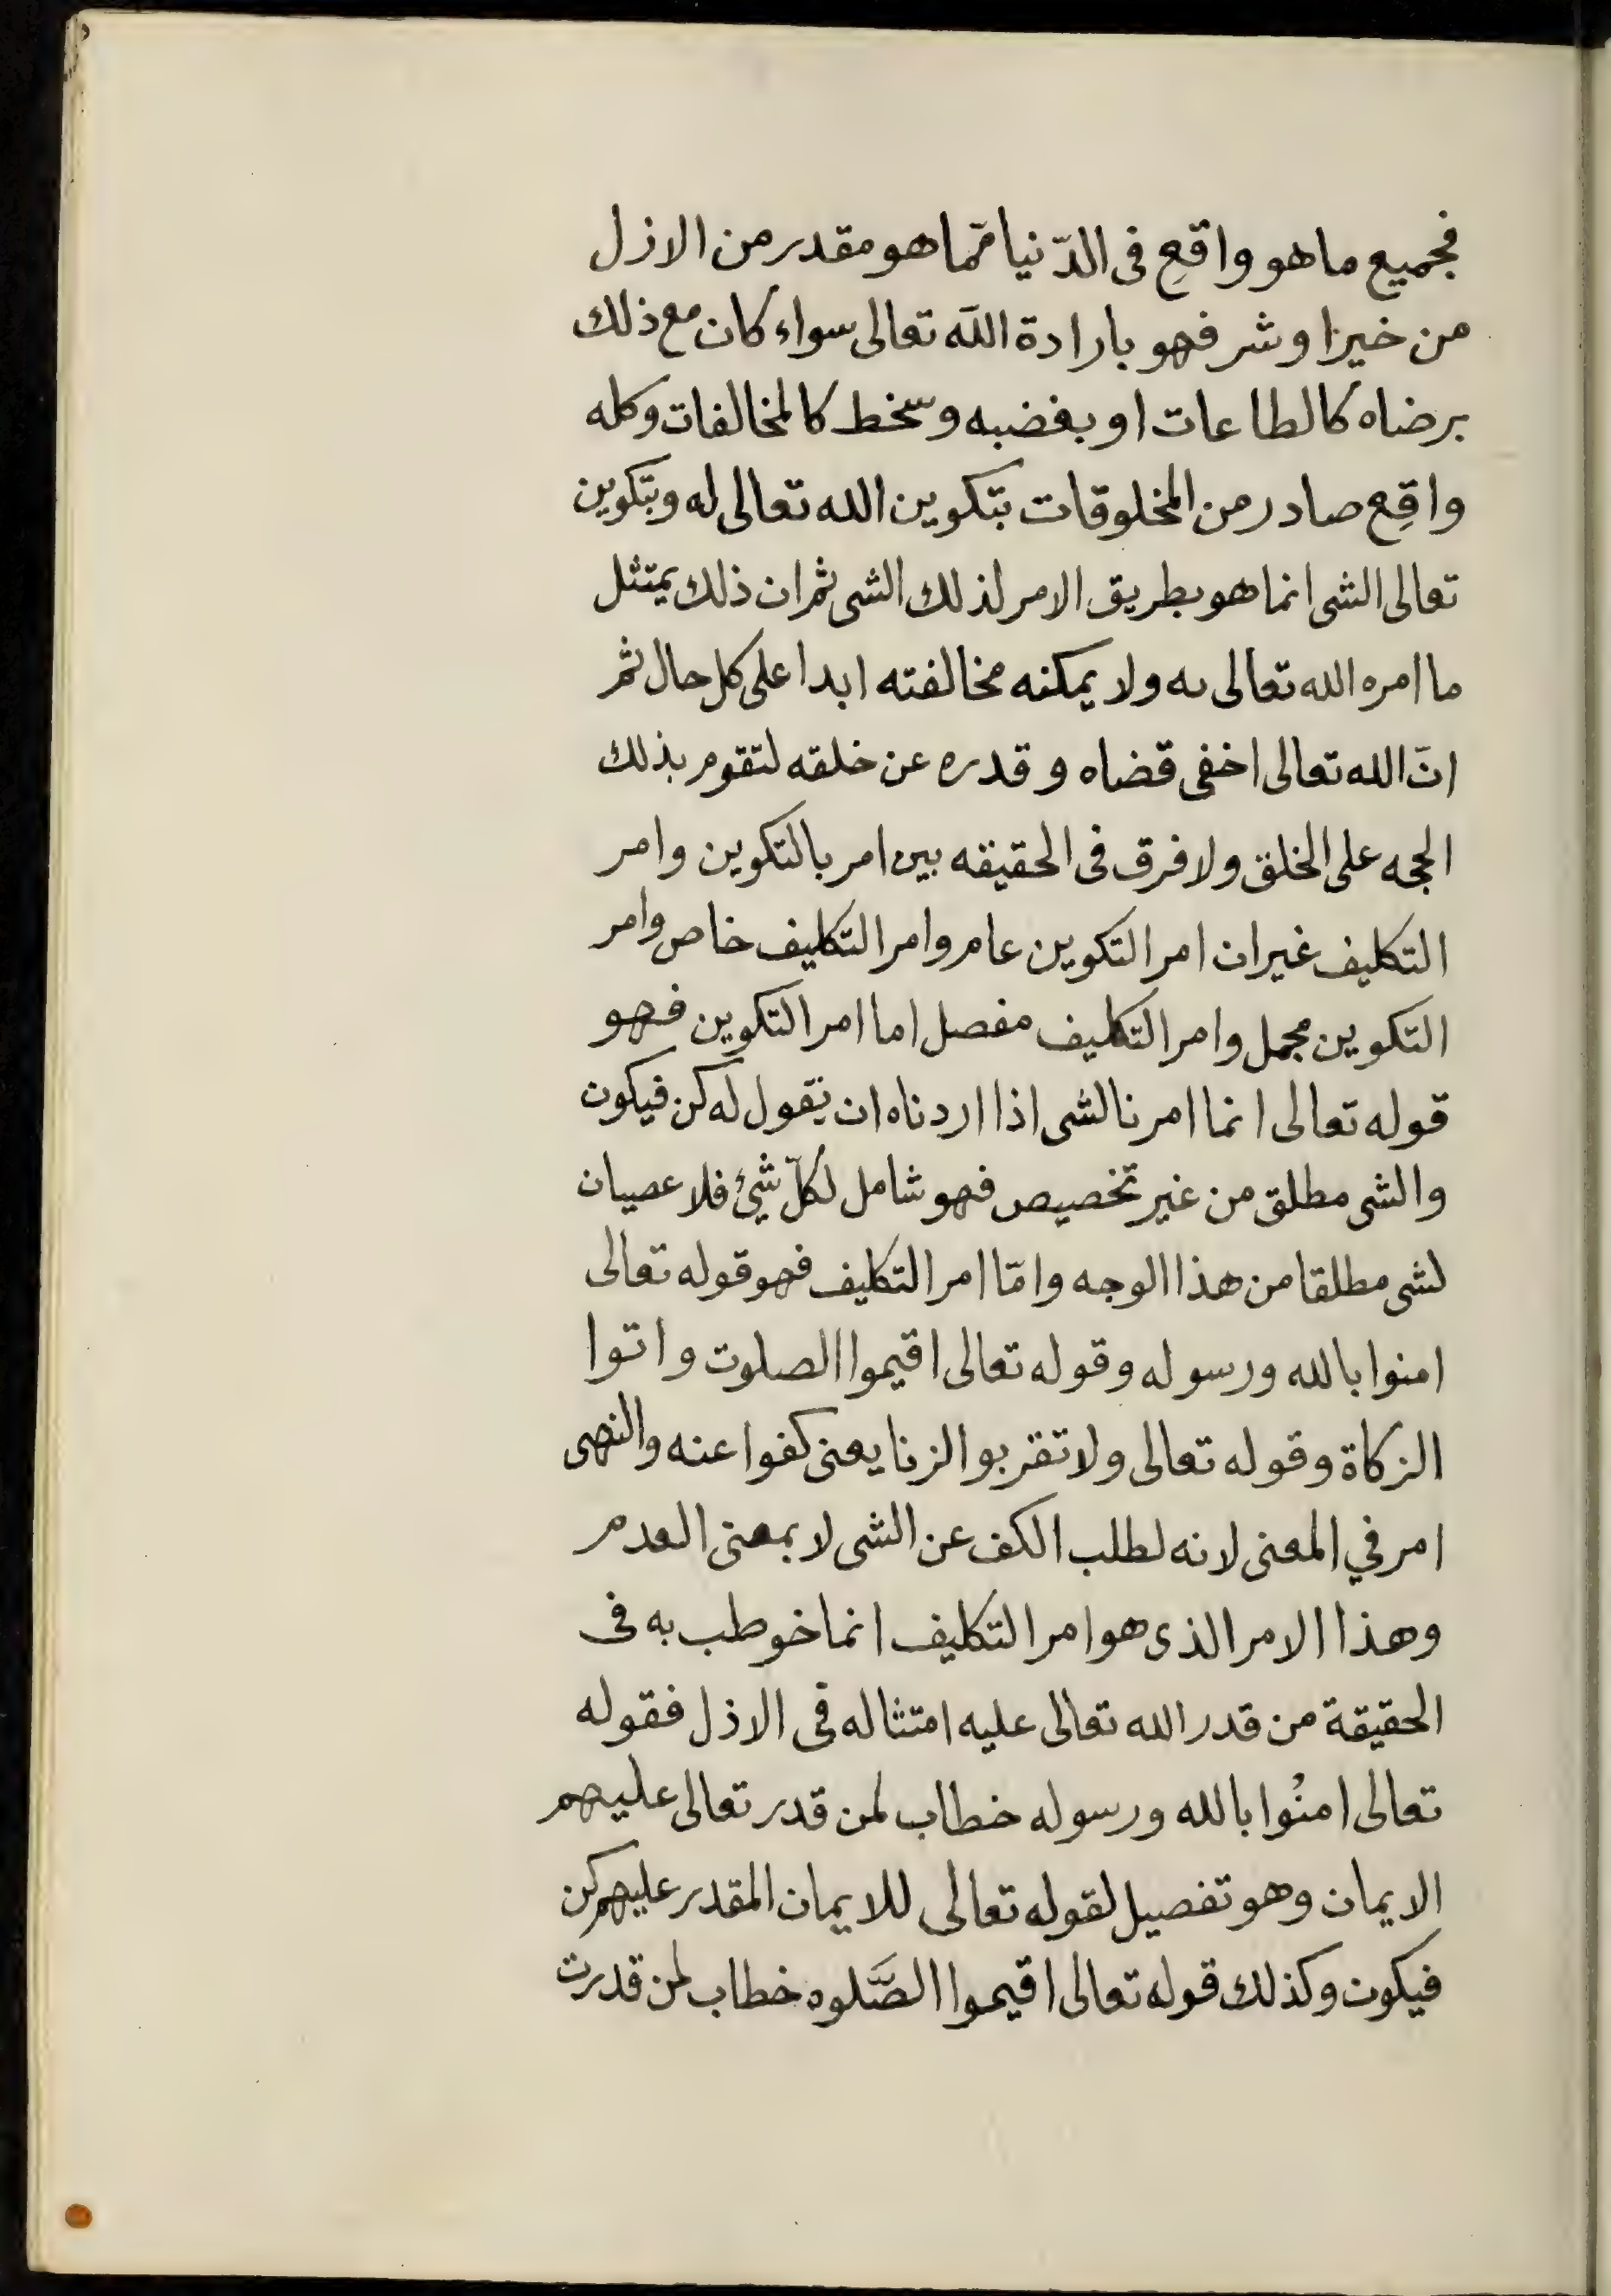 فجميع ما هو واقع في الدّنيا ممّا هو مقدر من الازل
من خير او شر فهو بارادة الله تعالى سواء كان مع ذلك
برضاه كالطاعات او بغضبه وسخط كالمخالفات وكله
واقع صادر من المخلوقات بتكوين الله تعالى له وبتكوين
تعالى الشى انما هو بطريق الامر لذلك الشى ثم ان ذلك يمتثل
ما امره الله تعالى به ولا يمكنه مخالفته ابدا على كل حال ثم
انّ الله تعالى اخفى قضاه و قدره عن خلقه لتقوم بذلك
الحجه على الخلق ولا فرق فى الحقيقه بين امر بالتكوين وامر
التكليف غير ان امر التكوين عام وامر التكليف خاص وامر
التكوين مجمل وامر التكليف مفصل اما امر التكوين فهو
قوله تعالى انما امرنا لشى اذا اردناه ان نقول له كن فيكون
والشى مطلق من غير تخصيص فهو شامل لكلّ شئ فلا عصيان
لشى مطلقا من هذا الوجه وامّا امر التكليف فهو قوله تعالى
امنوا بالله ورسوله وقوله تعالى اقيموا الصلوت واتوا
الزكاة وقوله تعالى ولا تقربو الزنا يعنى كفوا عنه والنهى
امر في المعنى لانه لطلب الكف عن الشى لا بمعنى العدم
وهذا الامر الذى هو امر التكليف انما خوطب به فى
الحقيقة من قدر الله تعالى عليه امتثاله فى الاذل فقوله
تعالى امنُوا بالله ورسوله خطاب لمن قدر تعالى عليهم
الايمان وهو تفصيل لقوله تعالى للايمان المقدر عليهم كن
فيكون وكذلك قوله تعالى اقيموا الصَّلوه خطاب لمن قدرت